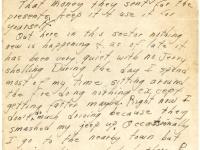 That money they sent for the
present, keep it & use it for
yourself.
But here in this sector nothing
new is happening & as of late it
has been very quiet with no Jerry
shelling. During the day I spend
most of my time sitting around
the fire doing nothing except
getting fatter maybe. Right now I
don't much driving because they
smashed my jeep up. Occasionally
I go to the nearby town but